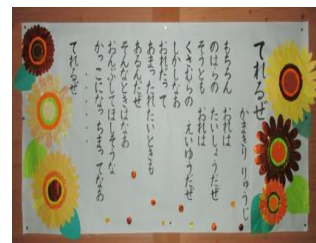 てれるぜ
かまきり りゅうじ
もちろん おれは
のはらの たいしょうだぜ
そうとも おれは
くさむらの えいゆうだぜ
しかしなあ
おれだって
あまったれたいときも
あるんだぜ
そんなときはなあ
おんぶしてほしそうな
かっこになっちまってなあ
・・・・・
てれるぜ